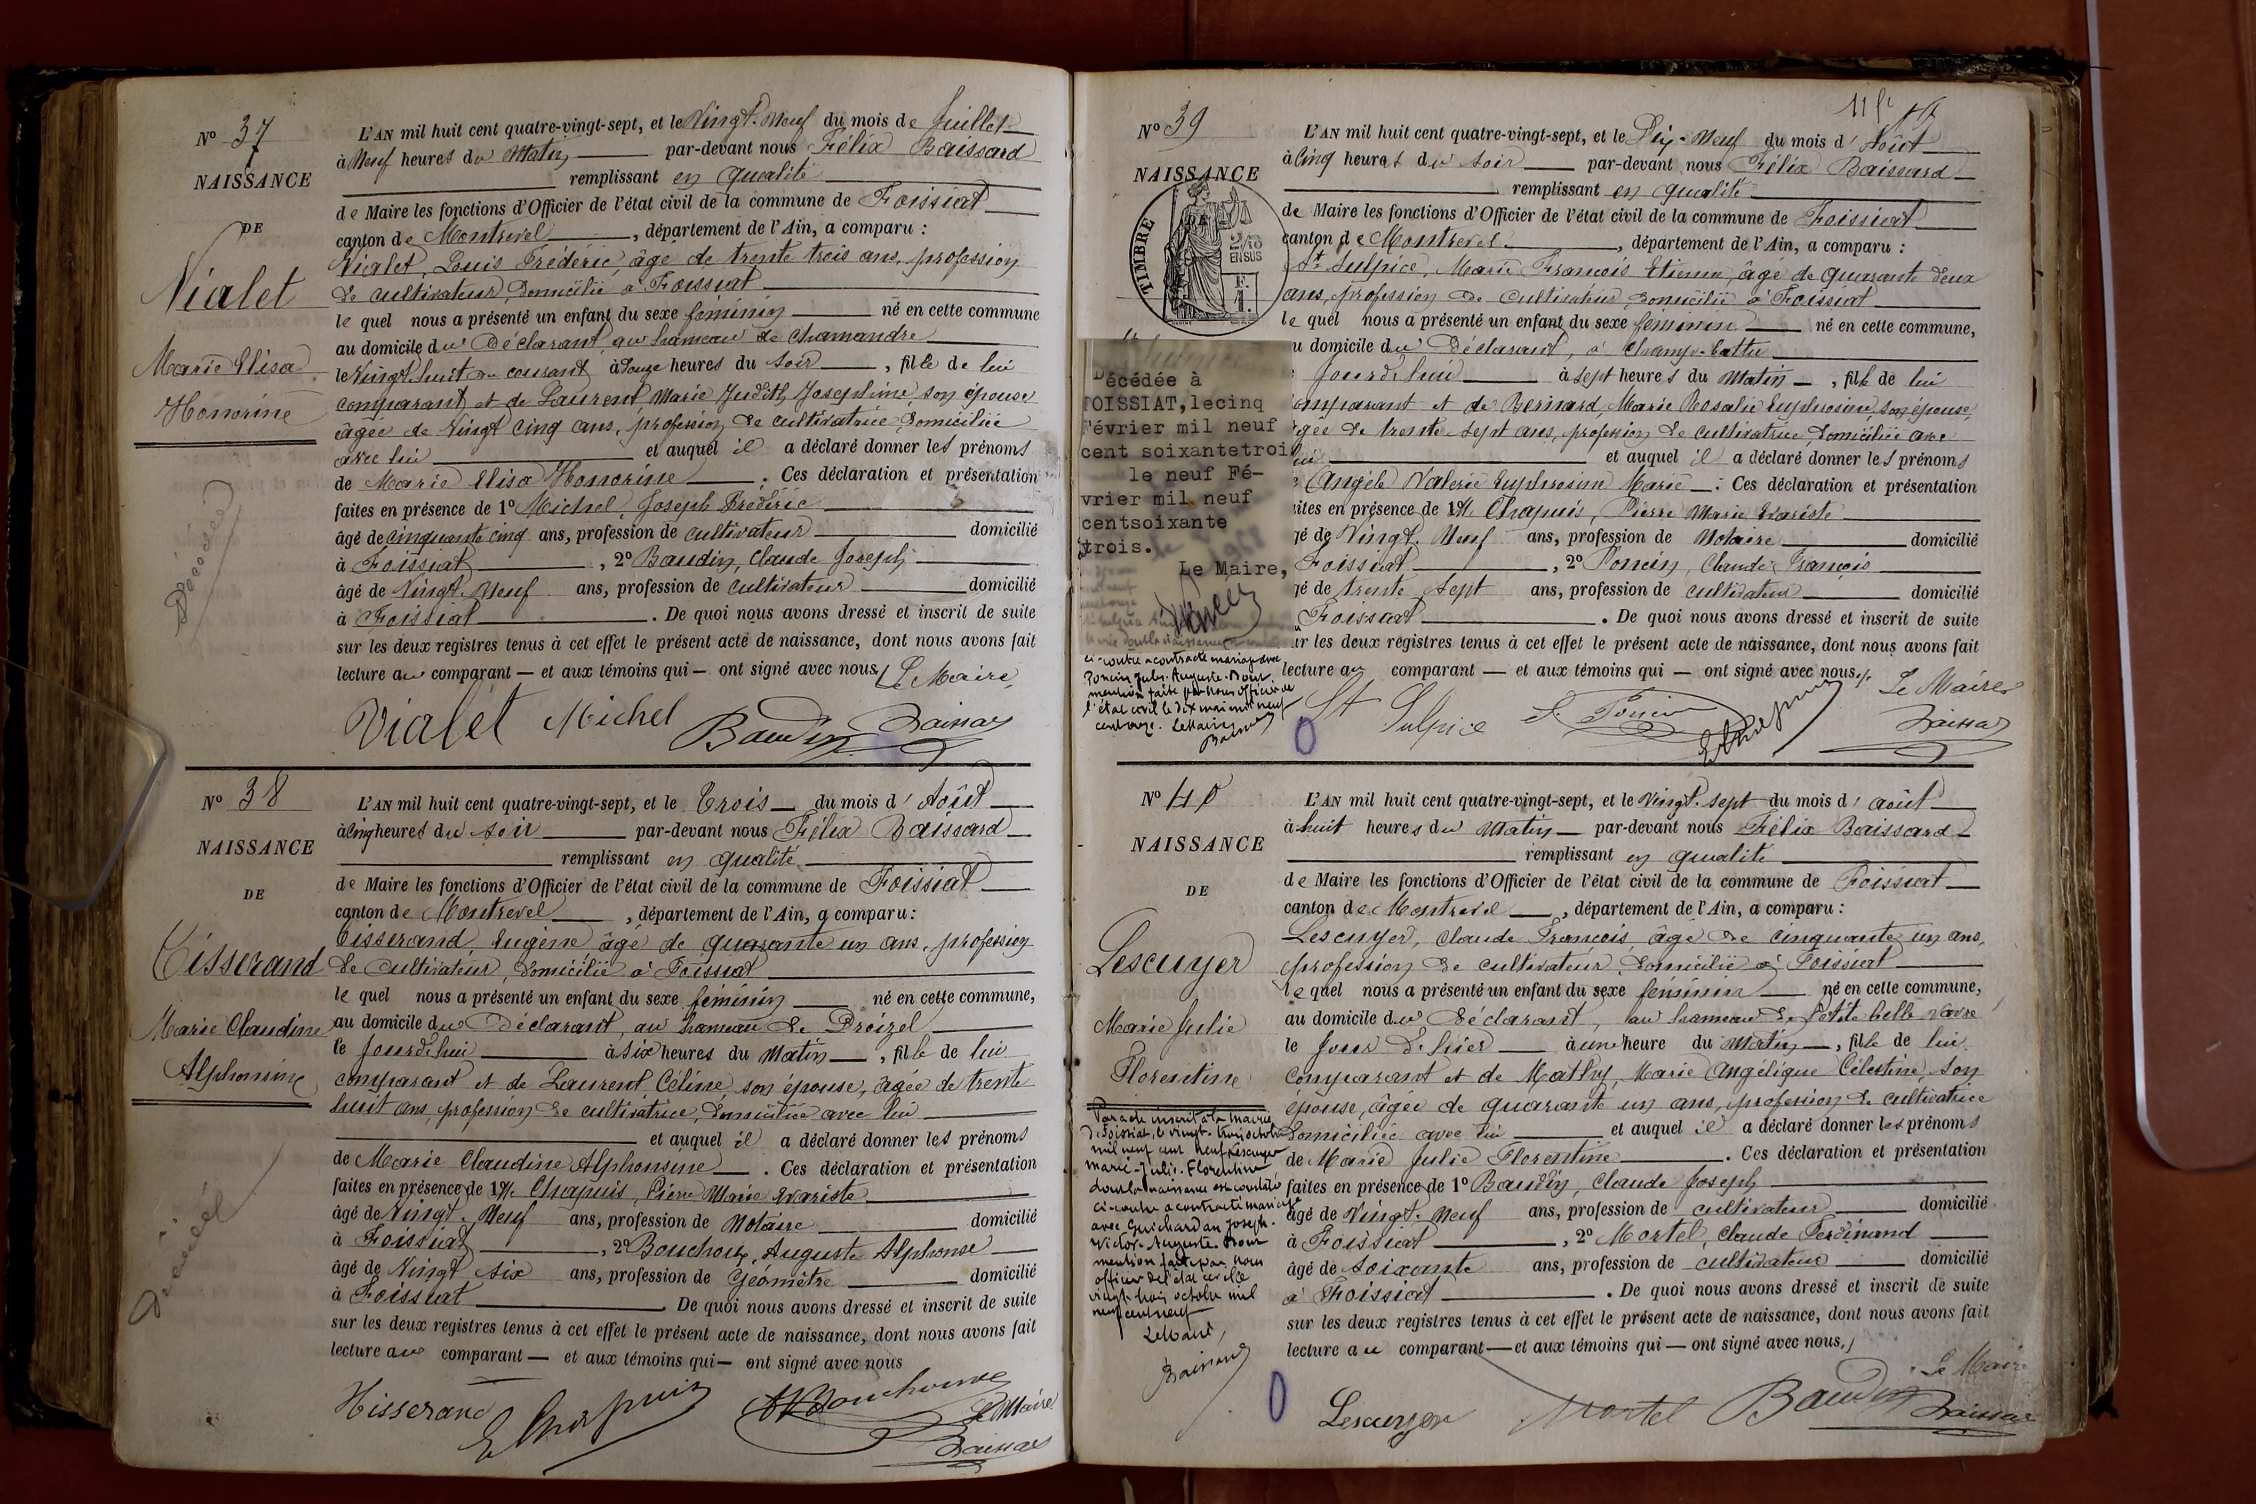 N° 37
NAISSANCE
DE
Vialet
Marie Elisa
Honorine
Décédée
L'AN mil huit cent quatre-vingt-sept, et le Vingt-Neuf du mois de Juillet
à Neuf heures du Matin par-devant nous Félix Baissard
remplissant en qualité
de Maire les fonctions d'Officier de l'état civil de la commune de Foissiat
canton de Montrevel, département de l'Ain, a comparu :
Vialet, Louis Frédéric, âgé de trente trois ans, profession
de cultivateur, domicilié à Foissiat
le quel nous a présenté un enfant du sexe féminin né en cette commune
au domicile du Déclarant, au hameau de Chamandre
le Vingt huit du courant à douze heures du soir, fille de lui
comparant et de Laurent Marie Judith Joséphine son épouse
âgée de Vingt cinq ans, profession de cultivatrice domiciliée
avec lui et auquel il a déclaré donner les prénoms
de Marie Elisa Honorine. Ces déclaration et présentation
faites en présence de 1° Michel, Joseph Frédéric
âgé de cinquante cinq ans, profession de cultivateur domicilié
à Foissiat, 2° Baudin, Claude Joseph
âgé de Vingt-Neuf ans, profession de cultivateur domicilié
à Foissiat. De quoi nous avons dressé et inscrit de suite
sur les deux registres tenus à cet effet le présent acte de naissance, dont nous avons fait
lecture au comparant — et aux témoins qui — ont signé avec nous. Le Maire,
Vialet Michel Baudin Baissard
N° 38
NAISSANCE
DE
Tisserand
Marie Claudine
Alphonsine
L'AN mil huit cent quatre-vingt-sept, et le Trois du mois d'Août
à cinq heures du soir par-devant nous Félix Baissard
remplissant en qualité
de Maire les fonctions d'Officier de l'état civil de la commune de Foissiat
canton de Montrevel, département de l'Ain, a comparu :
Tisserand Eugène âgé de quarante un ans, profession
de cultivateur, domicilié à Foissiat
le quel nous a présenté un enfant du sexe féminin né en cette commune,
au domicile du Déclarant, au hameau de Broizel
le Jourd'hui à six heures du Matin, fille de lui
comparant et de Laurent Céline, son épouse, âgée de trente
huit ans, profession de cultivatrice, domiciliée avec lui
et auquel il a déclaré donner les prénoms
de Marie Claudine Alphonsine. Ces déclaration et présentation
faites en présence de 1° Me Chapuis, Pierre Marie Evariste
âgé de Vingt-Neuf ans, profession de Notaire domicilié
à Foissiat, 2° Bouchoux, Auguste Alphonse
âgé de Vingt six ans, profession de Géomètre domicilié
à Foissiat De quoi nous avons dressé et inscrit de suite
sur les deux registres tenus à cet effet le présent acte de naissance, dont nous avons fait
lecture au comparant — et aux témoins qui — ont signé avec nous
Tisserand E Chapuis A Bouchoux Le Maire
Baissard
N° 39
NAISSANCE
TIMBRE
Décédée à
FOISSIAT, lecinq
Février mil neuf
cent soixantetroi
le neuf Fé-
vrier mil neuf
centsoixante
trois.
Le Maire,
ci-contre a contracté mariage avec
Poncin Jules Auguste. Dont
mention faite par nous officier de
l'état civil le dix mai mil neuf
cent onze. Le Maire
Baissard
L'AN mil huit cent quatre-vingt-sept, et le Dix-Neuf du mois d'Août
à cinq heures du soir par-devant nous Félix Baissard
remplissant en qualité
de Maire les fonctions d'Officier de l'état civil de la commune de Foissiat
canton de Montrevel, département de l'Ain, a comparu :
St Sulpice, Marie François Etienne, âgé de quarante deux
ans, profession de cultivateur domicilié à Foissiat
le quel nous a présenté un enfant du sexe féminin né en cette commune,
u domicile du Déclarant, à Champ-battu
Jourd'hui à sept heures du Matin, fille de lui
comparant et de Bernard, Marie Rosalie Euphrosine, son épouse,
âgée de trente-sept ans, profession de cultivatrice, domiciliée avec
lui et auquel il a déclaré donner les prénoms
Angèle Valérie Euphrosine Marie. Ces déclaration et présentation
ites en présence de 1° Me Chapuis, Pierre Marie Evariste
gé de Vingt-Neuf ans, profession de Notaire domicilié
Foissiat, 2° Poncin, Claude François
gé de trente sept ans, profession de cultivateur domicilié
Foissiat. De quoi nous avons dressé et inscrit de suite
ur les deux registres tenus à cet effet le présent acte de naissance, dont nous avons fait
lecture au comparant — et aux témoins qui — ont signé avec nous. Le Maire
St Sulpice F. Poncin E Chapuis Baissard
N° 40
NAISSANCE
DE
Lescuyer
Marie Julie
Florentine
Par acte inscrit à la mairie
de Foissiat, le vingt-trois octobre
mil neuf cent neuf Lescuyer
Marie-Julie-Florentine
dont la naissance est constatée
ci-contre a contracté mariage
avec Guichardan Joseph-
Victor-Auguste. Dont
mention faite par nous
officier de l'état civil le
vingt-trois octobre mil
neuf cent neuf
Le Maire,
Baissard
L'AN mil huit cent quatre-vingt-sept, et le Vingt-sept du mois d'août
à huit heures du Matin par-devant nous Félix Baissard
remplissant en qualité
de Maire les fonctions d'Officier de l'état civil de la commune de Foissiat
canton de Montrevel, département de l'Ain, a comparu :
Lescuyer, Claude François, âgé de cinquante un ans,
profession de cultivateur domicilié à Foissiat
le quel nous a présenté un enfant du sexe féminin né en cette commune,
au domicile du Déclarant, au hameau de Petite belle vavre
le Jour d'hier à une heure du Matin, fille de lui
comparant et de Mathy, Marie Angélique Célestine, son
épouse, âgée de quarante un ans, profession de cultivatrice
domiciliée avec lui et auquel il a déclaré donner les prénoms
de Marie Julie Florentine. Ces déclaration et présentation
faites en présence de 1° Baudin, Claude Joseph
âgé de Vingt-Neuf ans, profession de cultivateur domicilié
à Foissiat, 2° Mortel, Claude Ferdinand
âgé de soixante ans, profession de cultivateur domicilié
à Foissiat. De quoi nous avons dressé et inscrit de suite
sur les deux registres tenus à cet effet le présent acte de naissance, dont nous avons fait
lecture au comparant — et aux témoins qui — ont signé avec nous.
Le Maire
Lescuyer Mortel Baudin Baissard